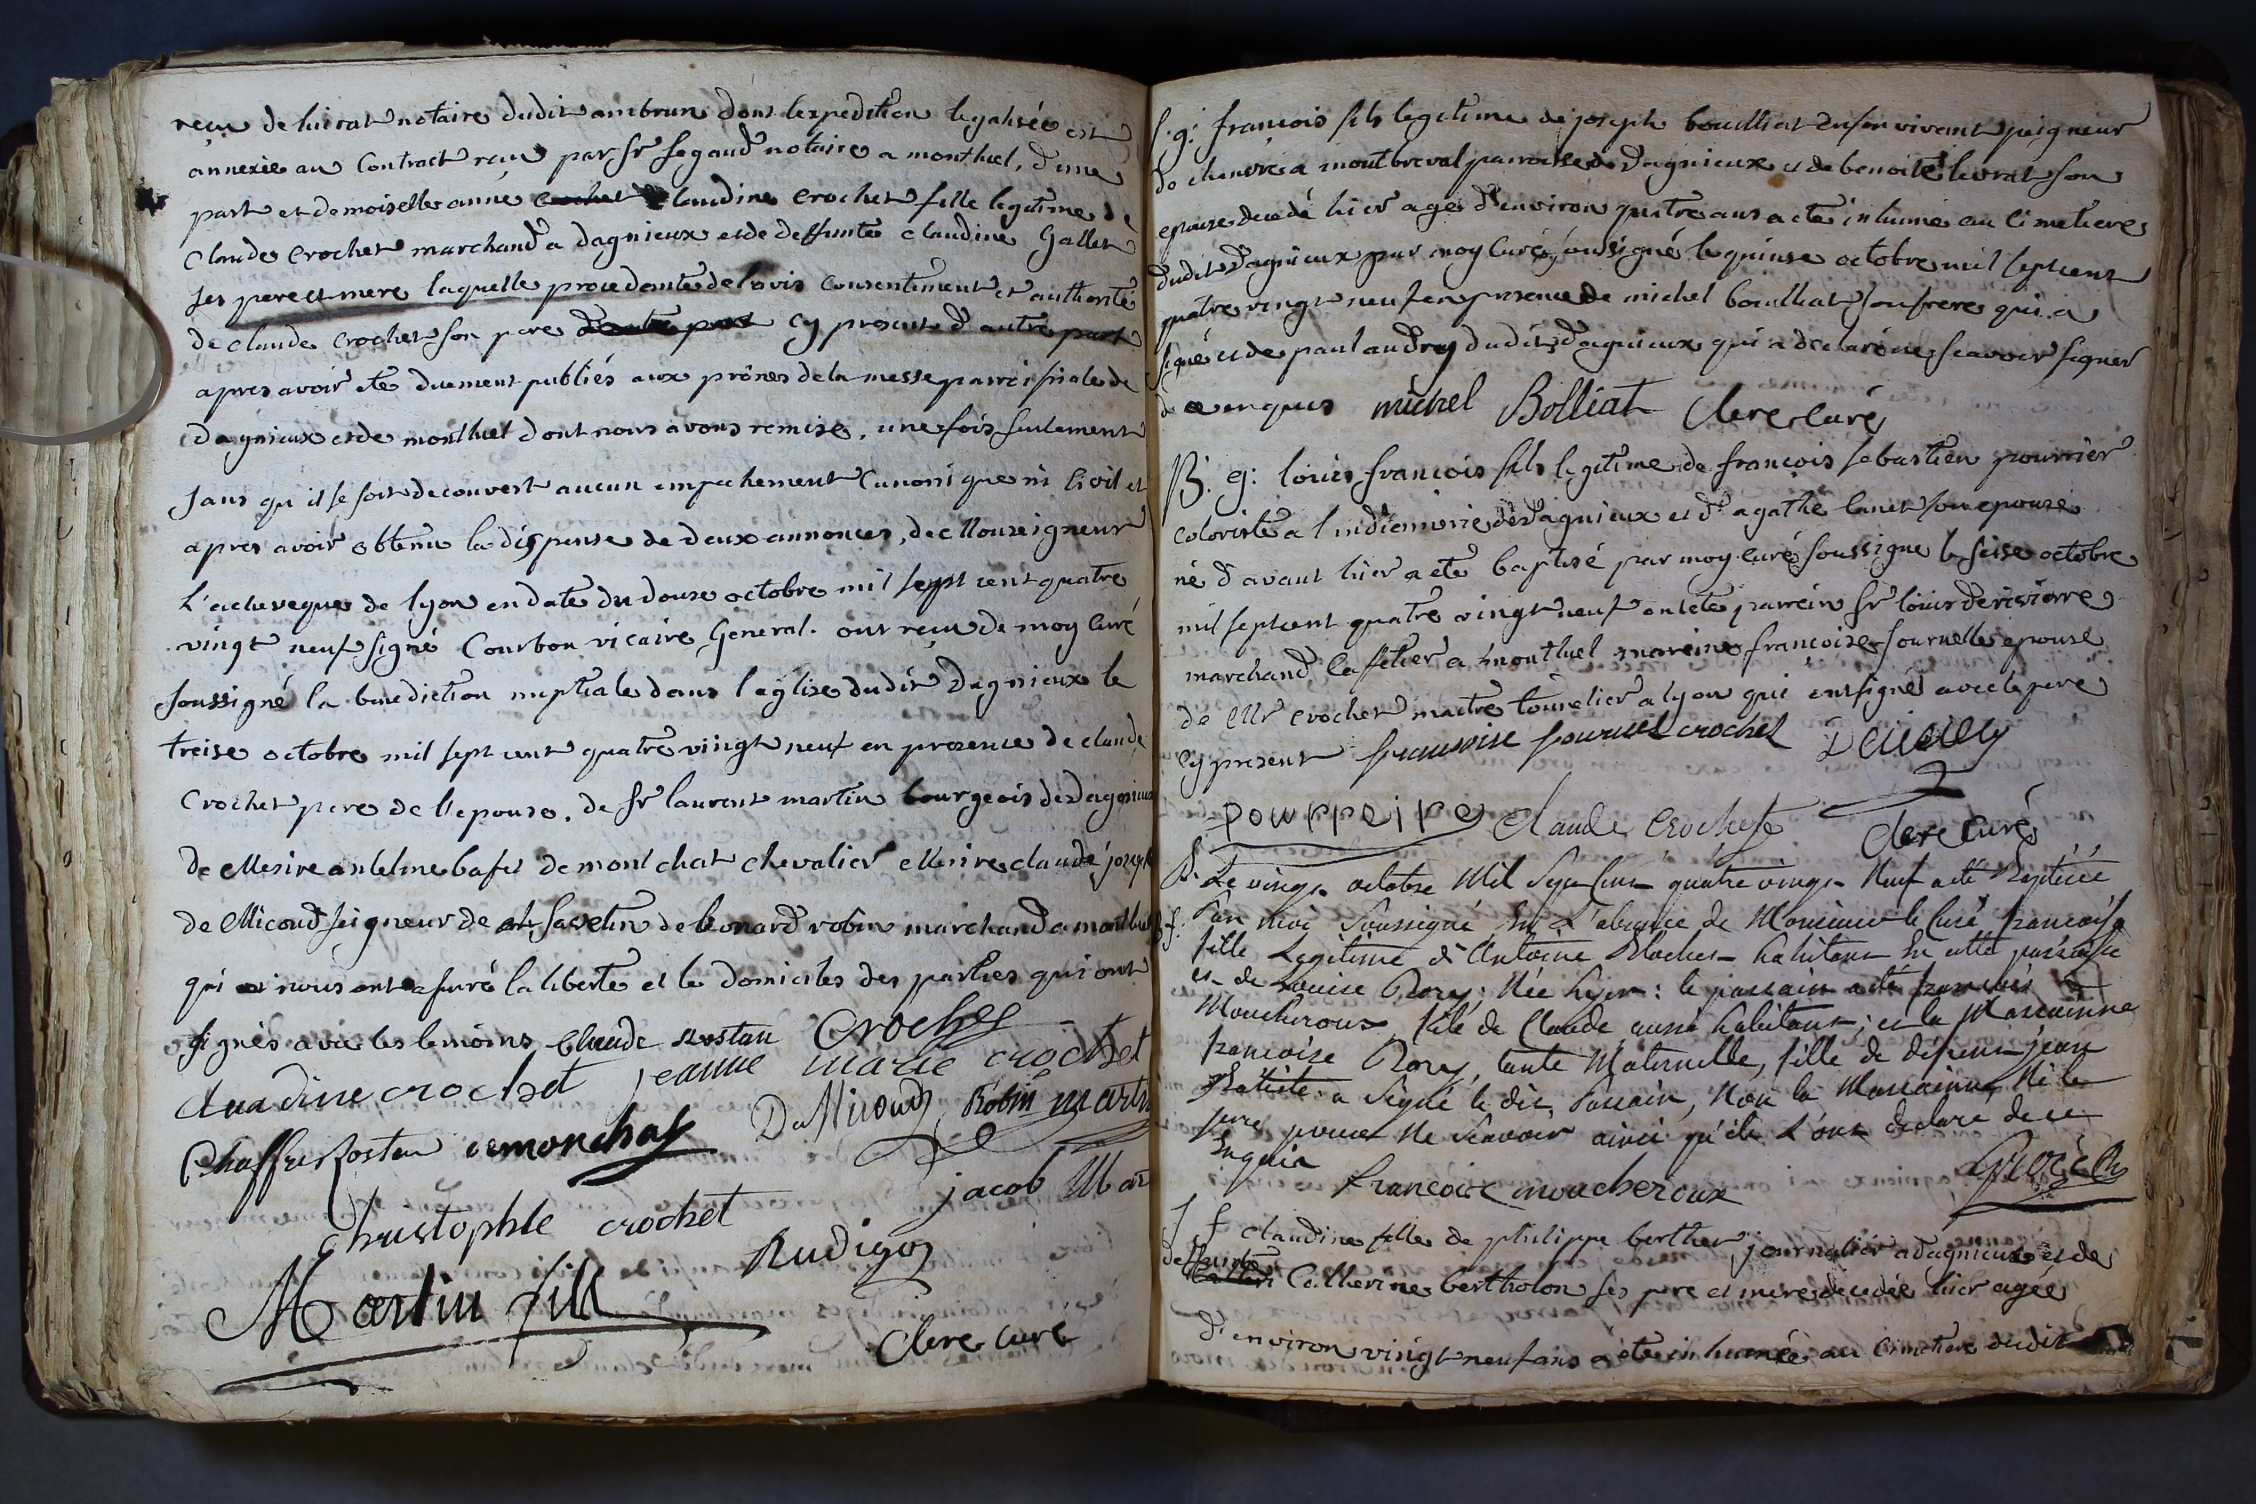 reçu de luirat notaire dudit ambrun dont lexpedition legalisée est
annexée au contract reçu par sr segaud notaire a montluel, d'une
part et demoiselle anne claudine crochet fille legitime de
claude crochet marchand a dagnieux et de deffunte claudine Gallet
ses pere et mere laquelle procedante de lavis consentement et authorité
de claude crochet son pere cy present d'autre part
apres avoir eté duement publiés aux prônes de la messe parroissiale de
dagnieux et de montluel dont nous avons remise, une fois seulement
sans qu il se soit decouvert aucun empechement canonique ni civil et
apres avoir obtenu la dispense de deux annonces, de Monseigneur
L'acheveque de lyon en date du douze octobre mil sept cent quatre
vingt neuf signé Courbon vicaire General. ont reçu de moy curé
soussigné la benediction nuptiale dans l'eglise dudit Dagnieux le
treise octobre mil sept cent quatre vingt neuf en presence de claude
Crochet pere de l'epouse. de sr laurent martin bourgeois de Dagnieux
de Messire antelme bafet de montchat chevalier Messire claude joseph
de Micoud seigneur de savelin de leonard robin marchand a montluel
qui nous ont assuré la liberté et le domicile des parties qui ont
signés avec les temoins Claude rostan Crochet
claudine crochet jeanne marie crochet
Chaffre Rostan demonchat Du Micoud Robin martin
Christophle crochet jacob Mar
Martin fils Rudigoz
Clere curé
S. g: françois fils legitime de joseph bouilliat en son vivant peigneur
de chenvre a montbreval parroisse de Dagnieux et de benoite levrat son
epouse decedé hier agé d'environ quatre ans a eté inhumé au cimetiere
dudit Dagnieux par moy curé soussigné le quinse octobre mil sept cent
quatre vingt neuf en presence de michel bouilliat son frere qui a
signé et de paul audry dudit Dagnieux qui a declaré ne scavoir signer
de ce enquis michel Bolliat Clere curé
B. g: louis françois fils legitime de françois sebastien pourrier
coloriste a l'indiennerie de Dagnieux et de agathe lanet son epouse
né d'avant hier a eté baptisé par moy curé soussigné le seise octobre
mil sept cent quatre vingt neuf ont eté parrein sr louis derivierre
marchand caffetier a montluel mareine francoise fournelle epouse
de Mr crochet maitre tonnelier a lyon qui ont signé avec le pere
cy present francoise fournel crochet
Claude Crochet Clere Curé
B. Le vingt octobre Mil Sept Cent quatre vingt Neuf a été Baptisée
f. Par moi soussigné En L'absence de Monsieur le Curé francoise
fille Legitime d'Antoine Blochet habitant En cette parroisse
et de Louise Rory; Née hyer: le parrain a été francois
Moucheroux fils de Claude aussi habitant; et la Marrainne
francoise Rory, tante Maternelle, fille de défunt jean
Batiste a signé le dit Parrain, Non la Marrainne Ni le
pere pour ne scavoir ainsi qu'ils L'ont declaré de ce
Enquis
francoix moucheroux
S f claudine fille de philippe berthet journalier a dagnieux et de
deffunte Catherine bertholon ses pere et mere decedée hier agée
d'environ vingt neuf ans a eté inhumée au Cimetiere dudit